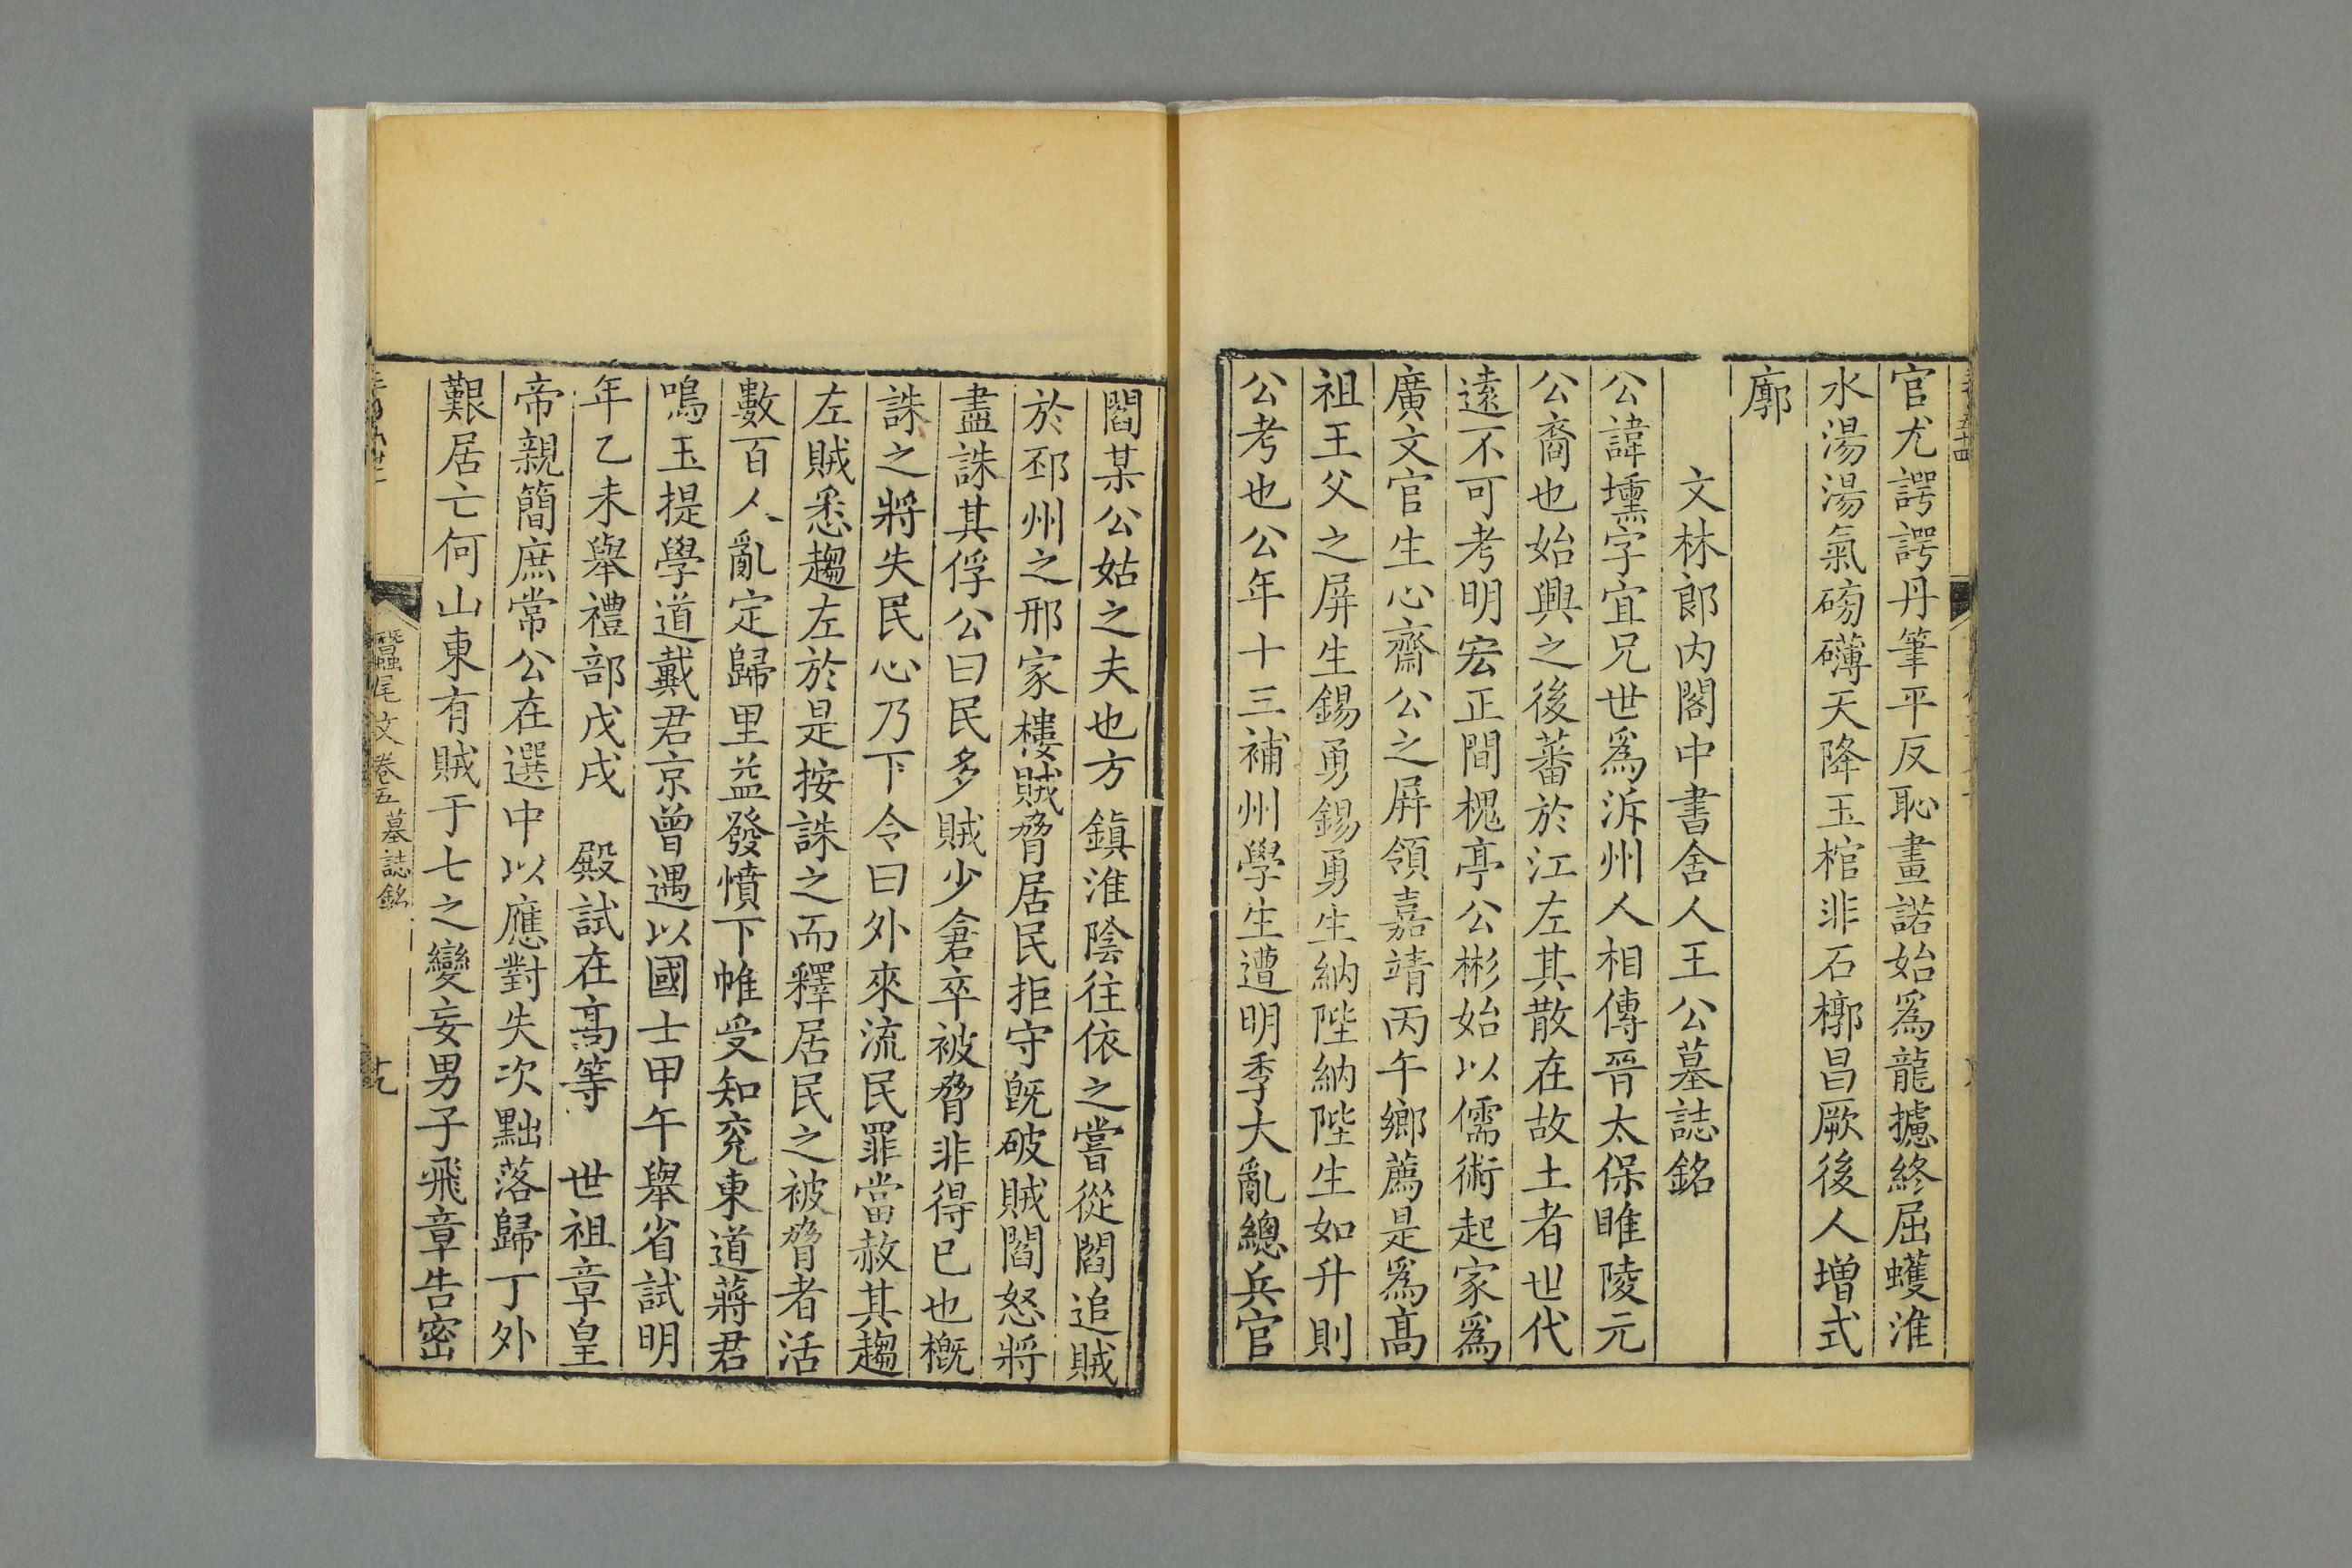 官尤諤諤丹筆平反恥畫諾始爲龍攄終屈蠖淮
水湯湯氣磅礴天降玉棺非石槨昌厥後人増式
廓
文林郎内閣中書舍人王公墓誌銘
公諱壎字宜兄世爲泝州人相傳晉太保睢陵元
公裔也始興之後蕃於江左其散在故土者世代
遠不可考明宏正間槐亭公彬始以儒術起家爲
廣文官生心齋公之屏領嘉靖丙午鄉薦是爲高
祖王父之屏生錫勇錫勇生納陛納陛生如升則
公考也公年十三補州學生遭明季大亂總兵官
閻某公姑之夫也方鎮淮陰往依之嘗從閻追賊
於邳州之邢家樓賊脅居民拒守旣破賊閻怒將
盡誅其俘公曰民多賊少倉卒被脅非得已也槪
誅之將失民心乃下令曰外來流民罪當赦其趨
左賊悉趨左於是按誅之而釋居民之被脅者活
數百人亂定歸里益發憤下帷受知兖東道蔣君
鳴玉提學道戴君京曾遇以國士甲午舉省試明
年乙未舉禮部戊戌　殿試在高等　世祖章皇
帝親簡庶常公在選中以應對失次黜落歸丁外
艱居亡何山東有賊于七之變妄男子飛章告密
蠶尾文卷五 墓誌銘
十九